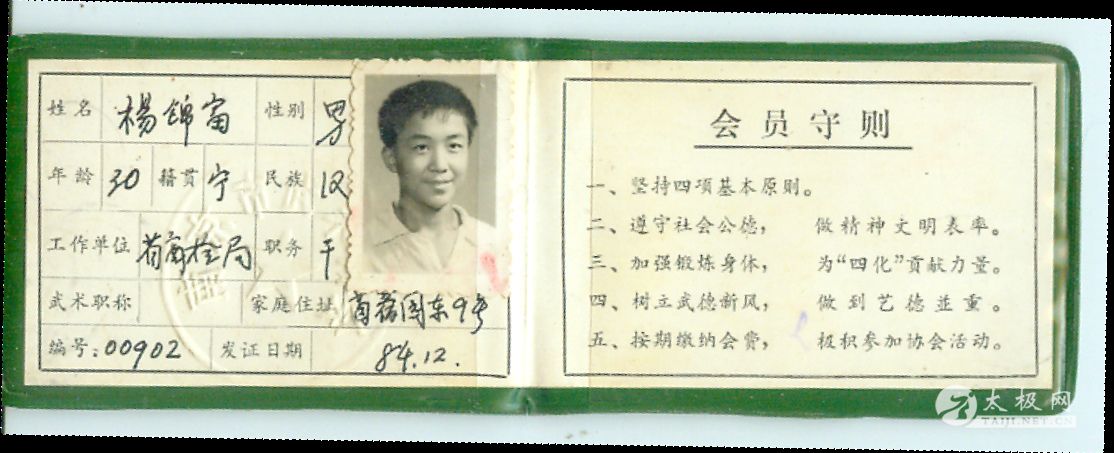 姓名 楊锦富 性别 男
年龄 30 籍贯 宁 民族 汉
工作单位 省商检局 职务 干
武术职称 家庭住址
编号:00902 发证日期 84.12.
会员守则
一、坚持四项基本原则。
二、遵守社会公德， 做精神文明表率。
三、加强锻炼身体， 为“四化”贡献力量。
四、树立武德新风， 做到艺德並重。
五、按期缴纳会费， 极积参加协会活动。
太极网
TAIJI.NET.CN